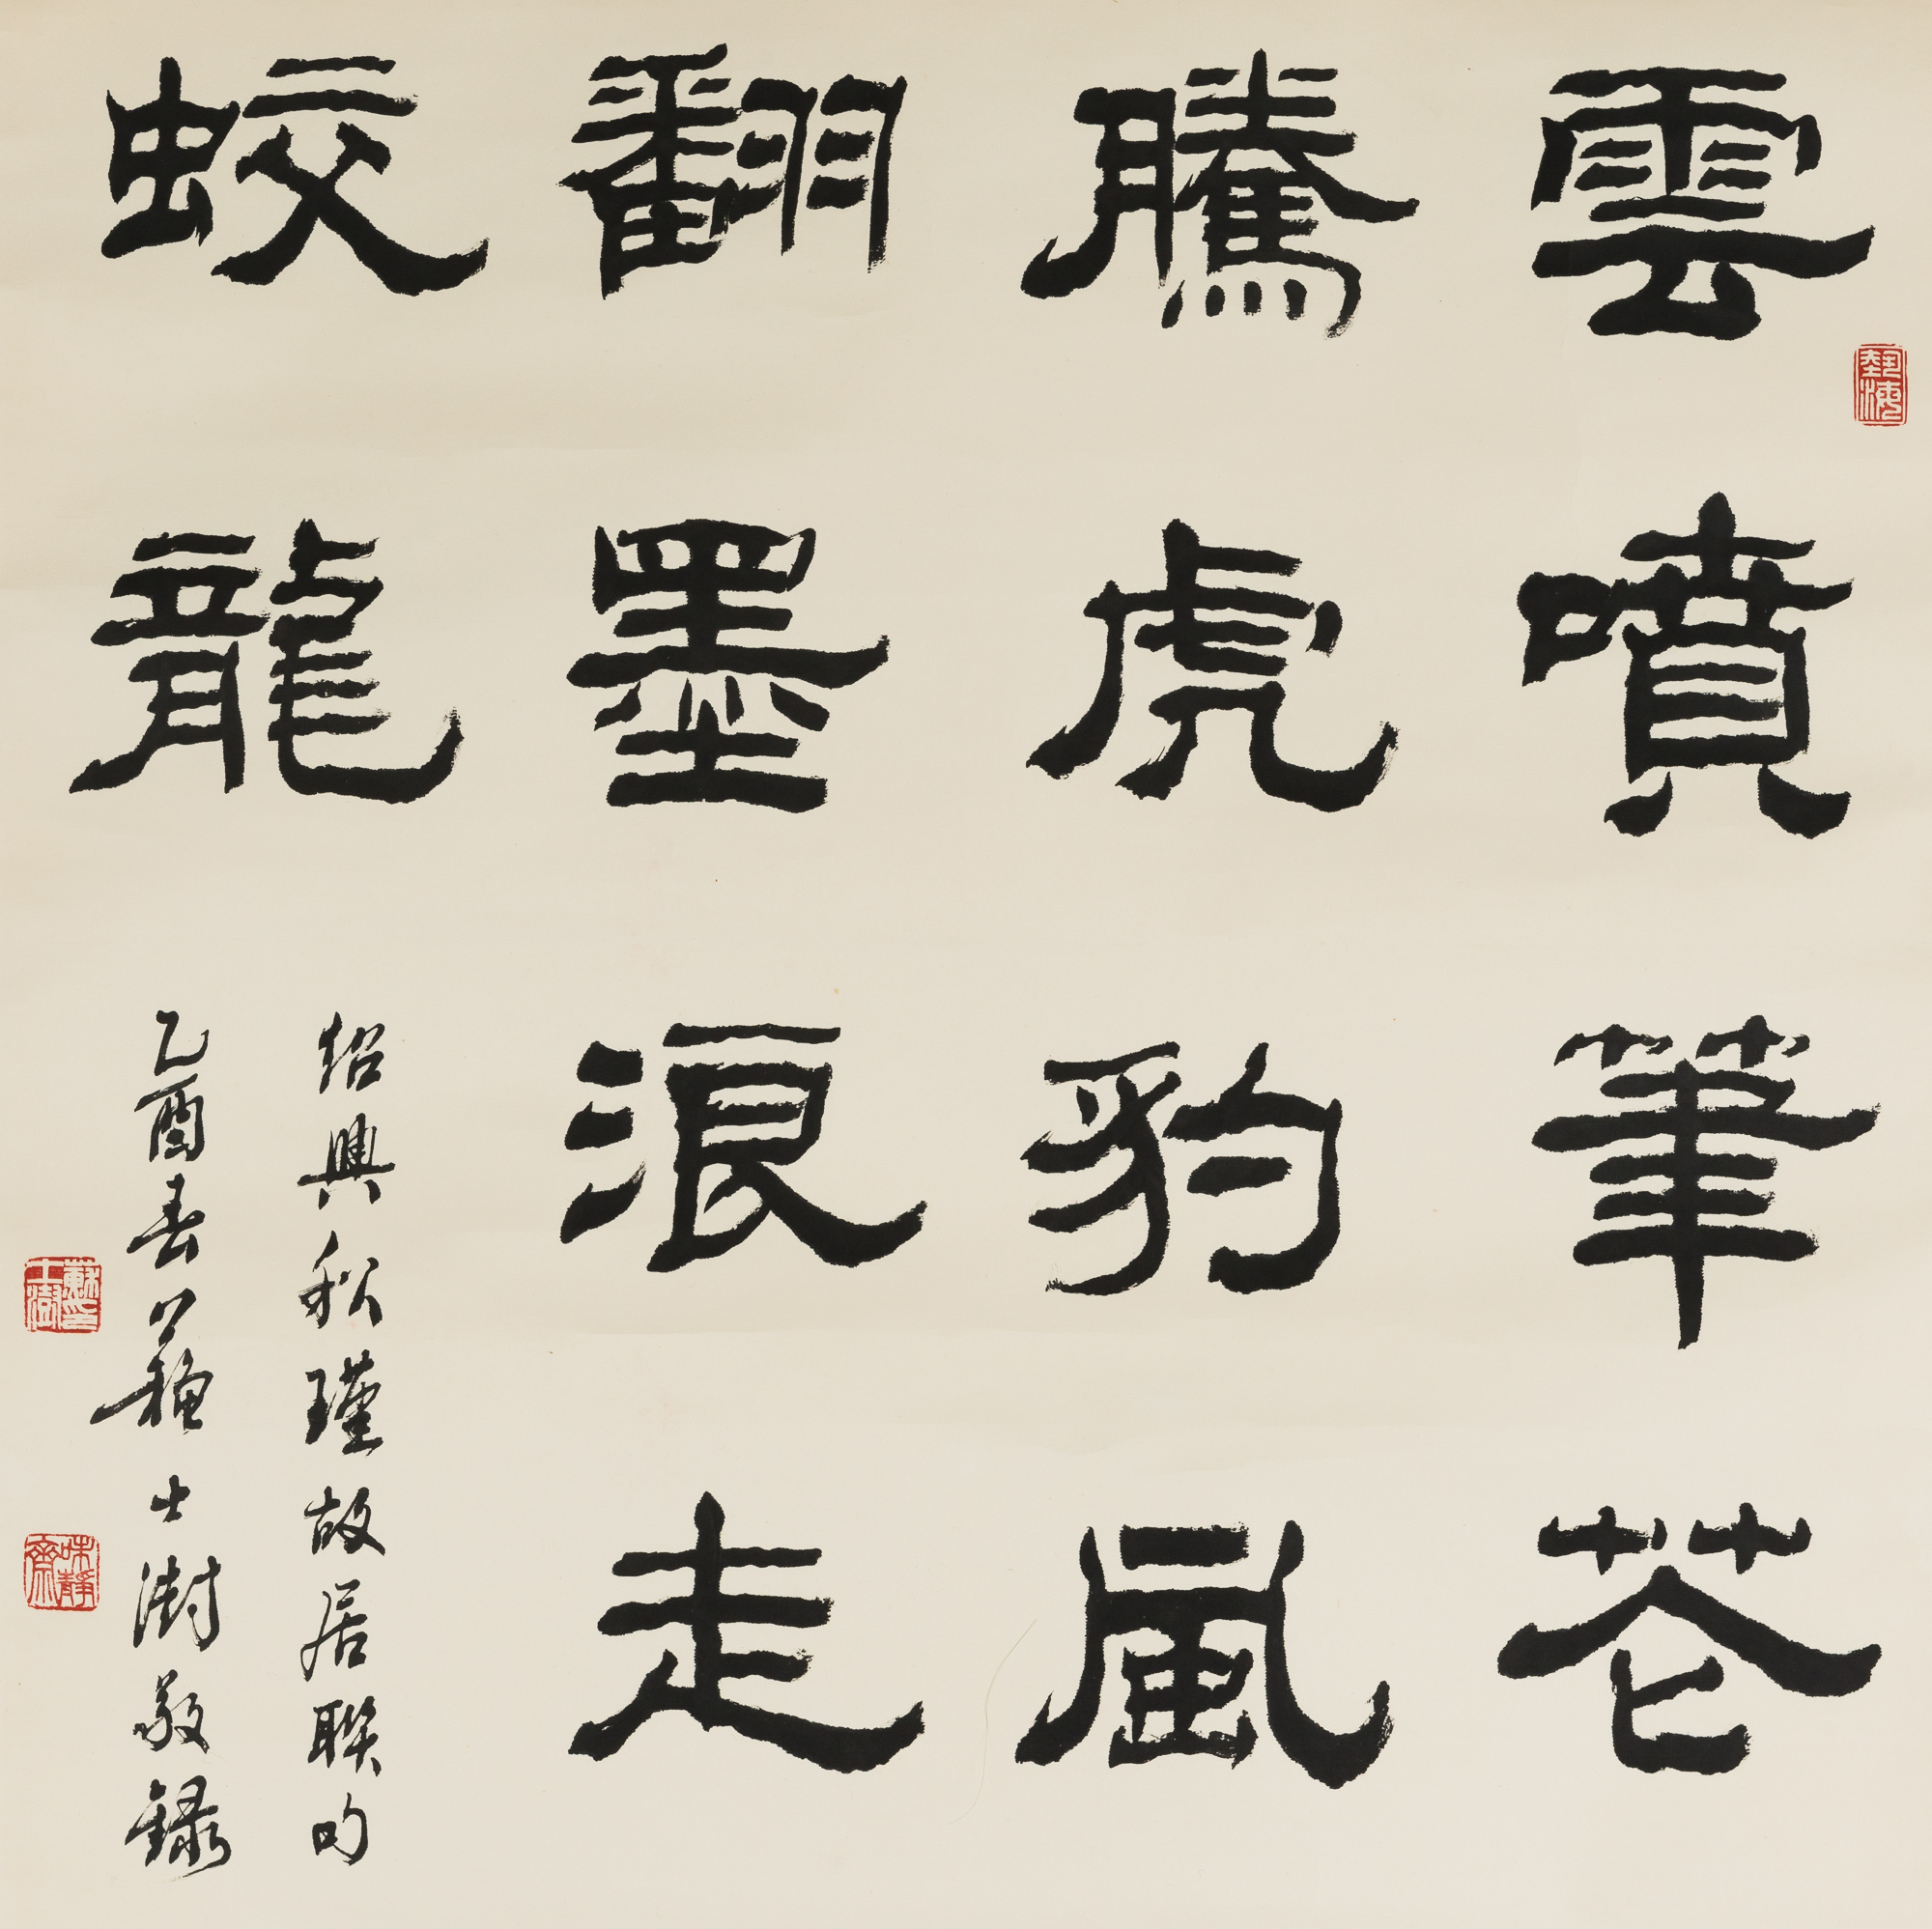 雲噴筆花
騰虎豹風
翻墨浪走
蛟龍
紹興秋瑾故居聯句
乙酉春蘇士澍敬錄